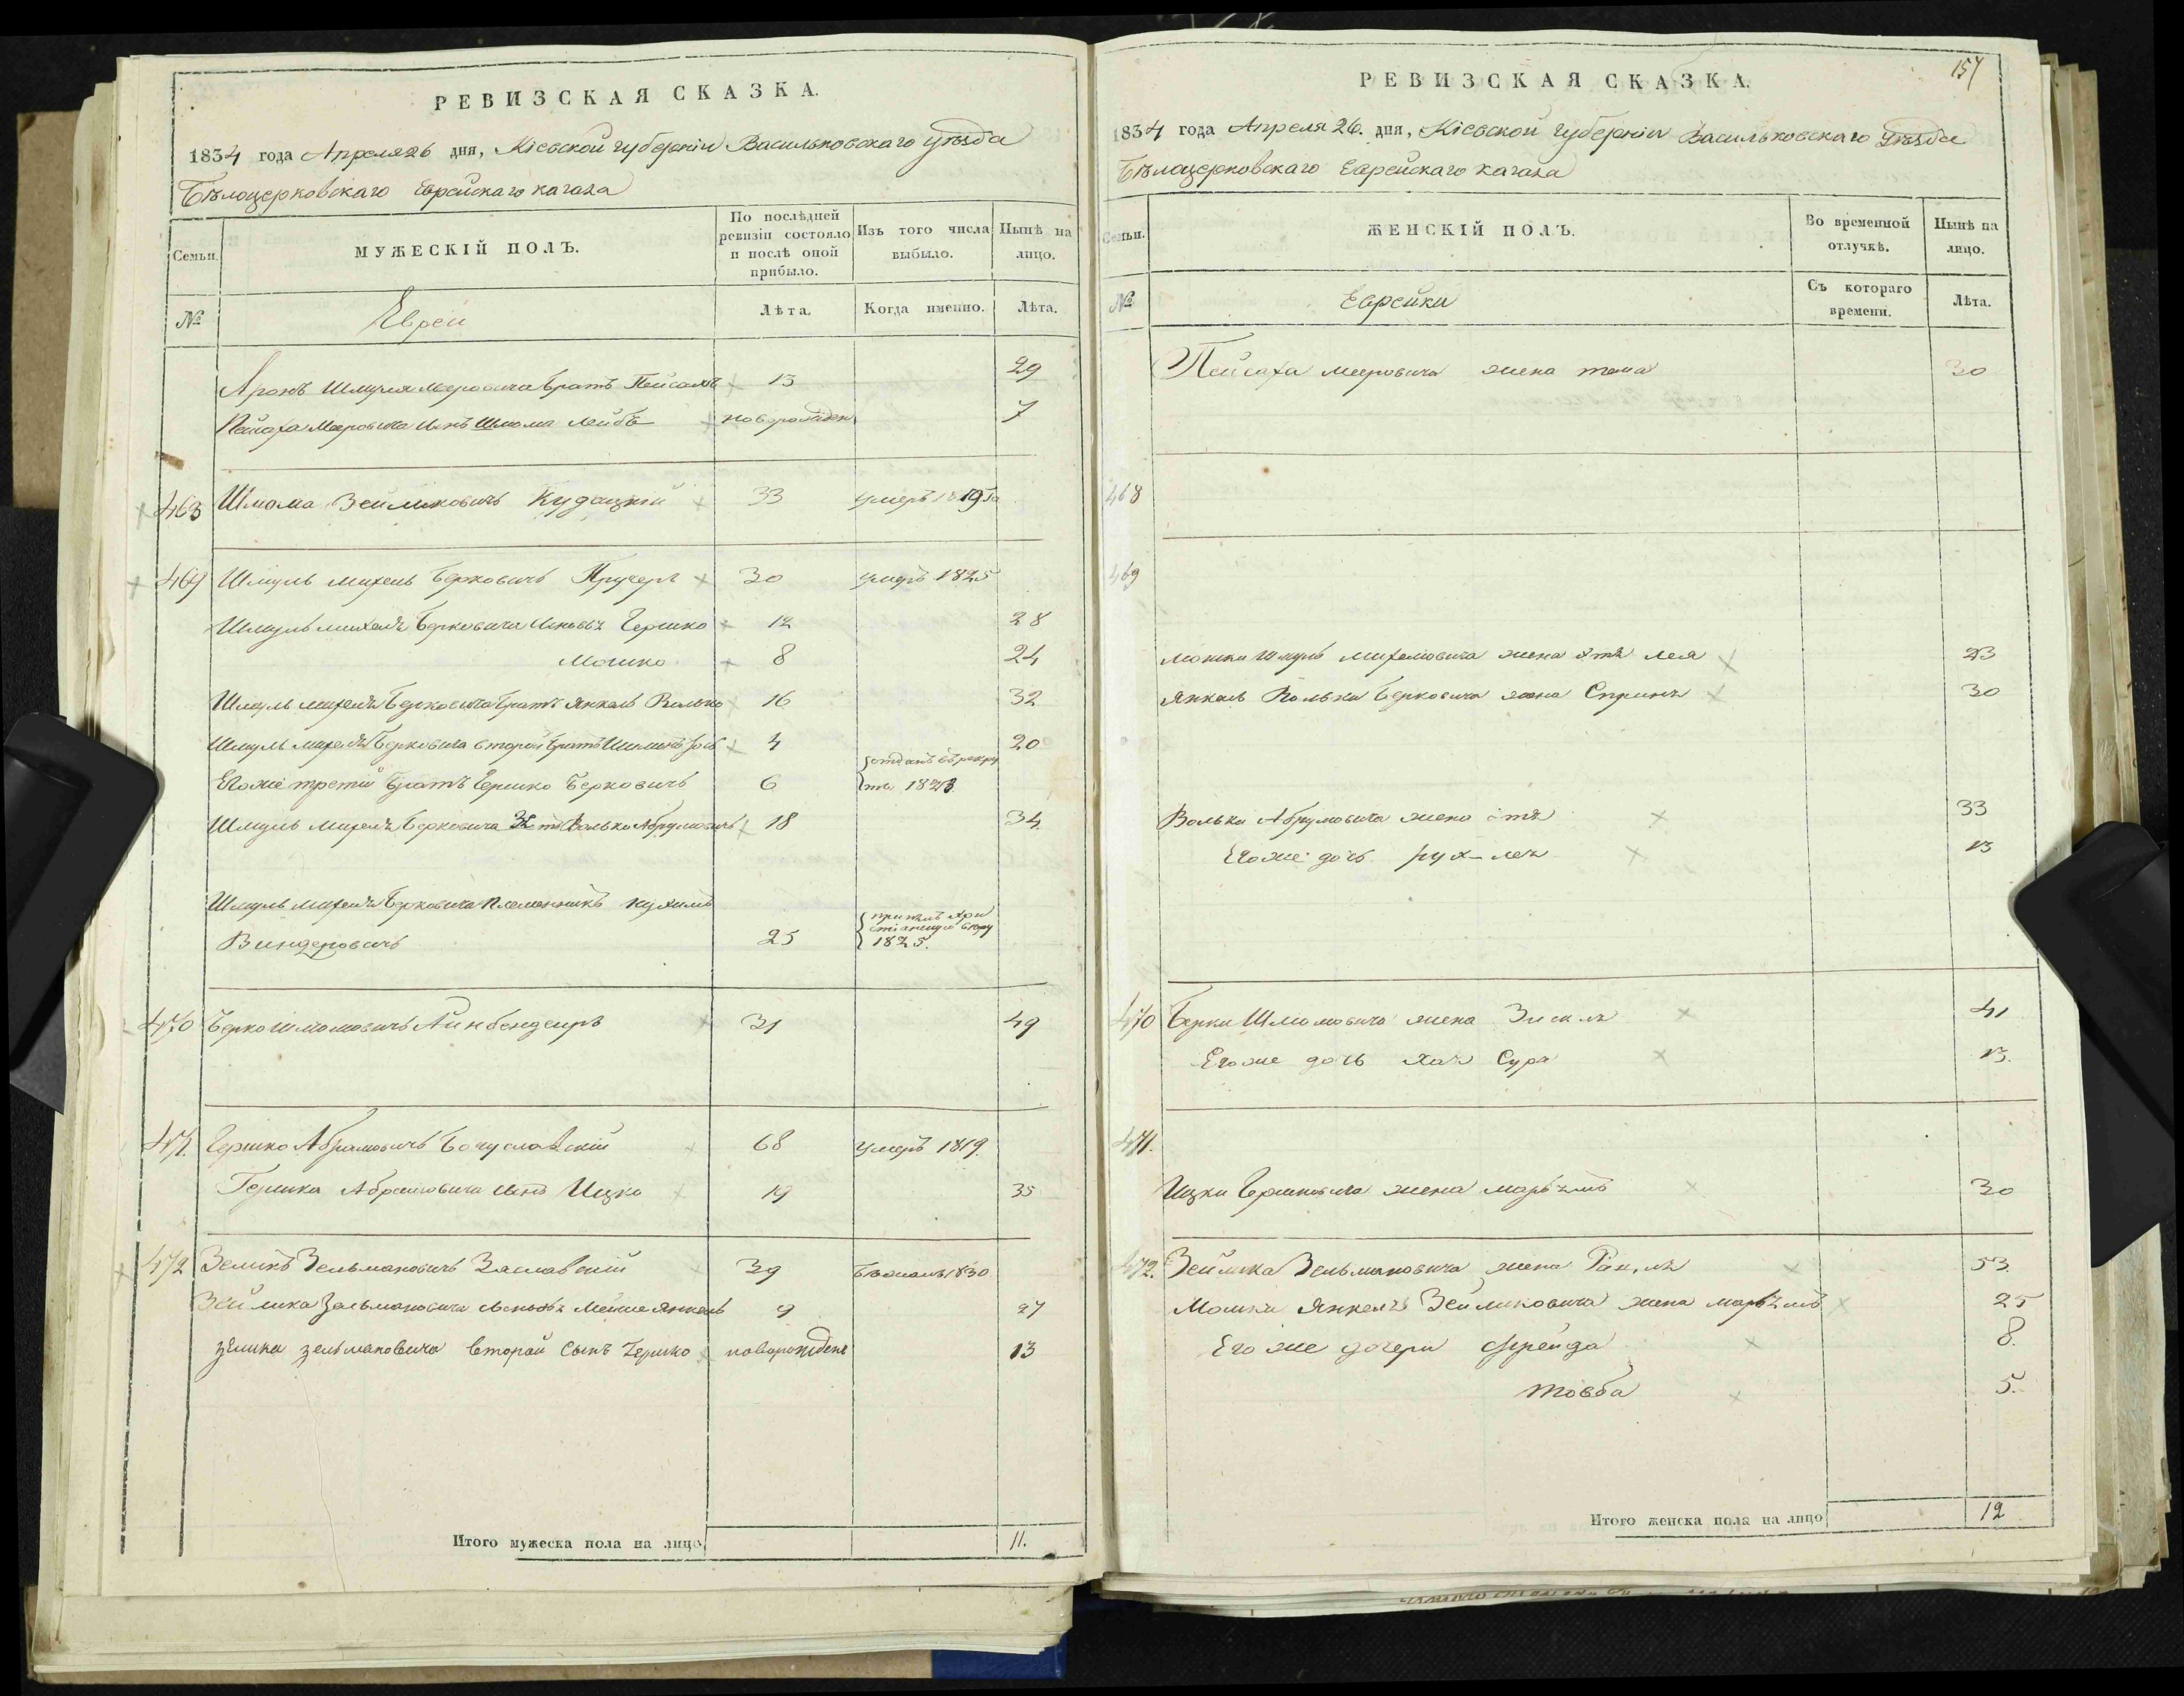 РЕВИЗСКАЯ СКАЗКА.
1834 года Апреля 26 дня, Кіевской губерніи Васильковскаго уѣзда
Бѣлоцерковскаго Еврейскаго кагала
Семьи.
МУЖЕСКІЙ ПОЛЪ.
По послѣдней ревизіи состояло и послѣ оной прибыло.
Изъ того числа выбыло.
Нынѣ на лицо.
№
Евреи
Лѣта.
Когда именно.
Лѣта.
Аронъ Шмуля Мееровича братъ Пейсахъ 13 29
Пейсаха Мееровича сынъ Шлома Лейбъ новорожден 7
468 Шлома Зейликовичъ 33 умеръ
469 Шмуль Михель Берковичъ 30 умеръ 1825
Шмуль Михеля Берковича сыновья Гершко 12 28
Мошко 8 24
Шмуль Михеля Берковича братъ Янкель Волько 16 32
Шмуль Михеля Берковича второй братъ 4 20
Его же третій братъ Гершко Берковичъ 6 отданъ въ рекру
ты 1828.
Шмуль Михеля Берковича зять Волько Абрумовичъ 18 34
Шмуль Михеля Берковича племенникъ
25
1825.
470 Берко Шлиомовичъ 31 49
471. Гершко Абрамовичъ Богуславскій 68 умеръ 1819.
Гершка Абрамовича сынъ Ицко 19 35
472 Зеликъ Зельмановичъ Заславскій 39 Бѣжалъ 1830
Зейлика Зельмановича сыновья Мойше Янкель 9 27
Зелика Зельмановича второй сынъ Гершко новорожденъ 13
Итого мужеска пола на лицо 11.
157
РЕВИЗСКАЯ СКАЗКА.
1834 года Апреля 26. дня, Кіевской губерніи Васильковскаго уѣзда
Бѣлоцерковскаго Еврейскаго кагала
Семьи.
ЖЕНСКІЙ ПОЛЪ.
Во временной отлучкѣ.
Нынѣ на лицо.
№
Еврейки
Съ котораго времени.
Лѣта.
Пейсаха Мееровича жена 30
468
469
Мошки Шмуль Михелиовича жена Лея 23
Янкель Волька Берковича жена Спринъя 30
Волька Абрумовича жена 33
Его же дочь Рух-лея 13
470 Берки Шлиомовича жена Зисля 41
Его же дочь Хая Сура 13.
471.
Ицки Гершковича жена Марьямъ 30
472. Зейлика Зельмановича жена 53.
Мошки Янкеля Зейликовича жена Марьямъ 25
Его же дочери Фрейда 8.
Товба 5.
Итого женска пола на лицо 12